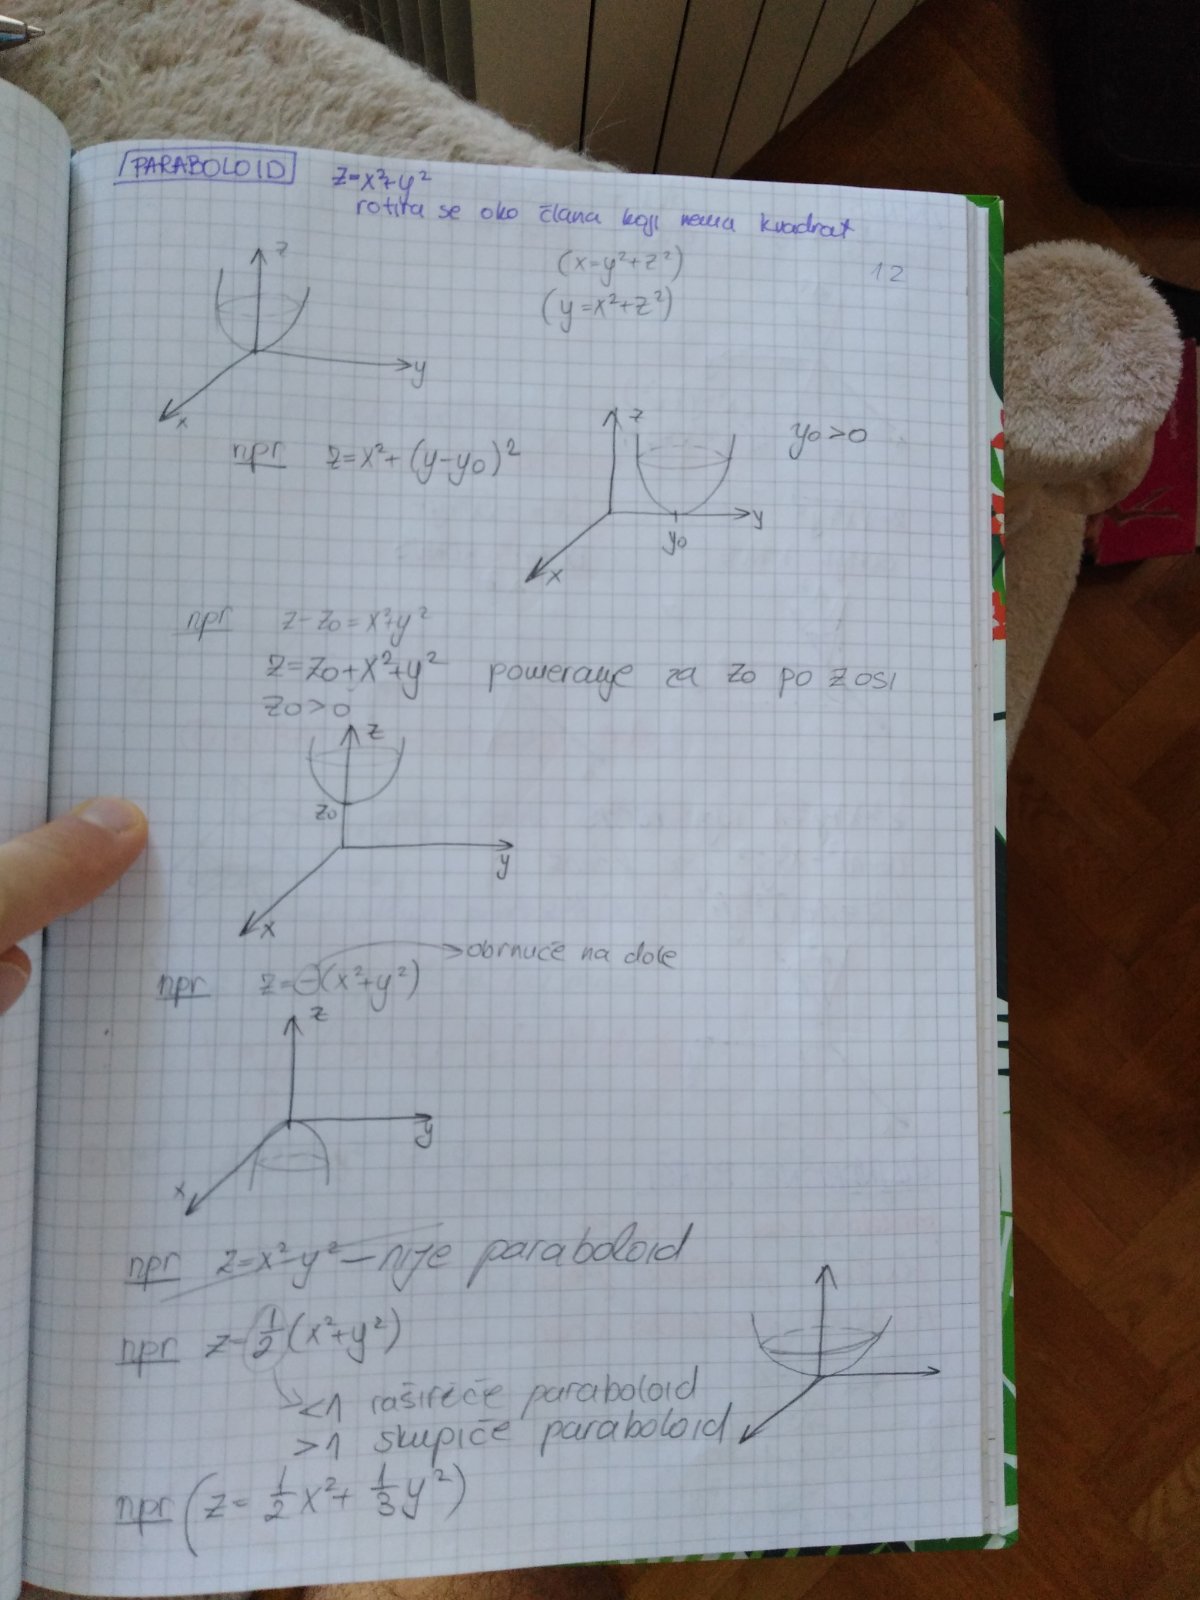 PARABOLOID z=x²+y²
rotira se oko člana koji nema kvadrat
(x=y²+z²)
12
(y=x²+z²)
z
y
x
npr z=x²+(y-y₀)²
z
y₀>0
y
y₀
x
npr z-z₀=x²+y²
z=z₀+x²+y² pomeranje za z₀ po z osi
z₀>0
z
z₀
y
x
npr z=-(x²+y²) →obrnuće na dole
z
y
x
npr z=x²-y² – nije paraboloid
npr z=½(x²+y²)
<1 raširiće paraboloid
>1 skupiće paraboloid
npr (z=½x²+⅓y²)